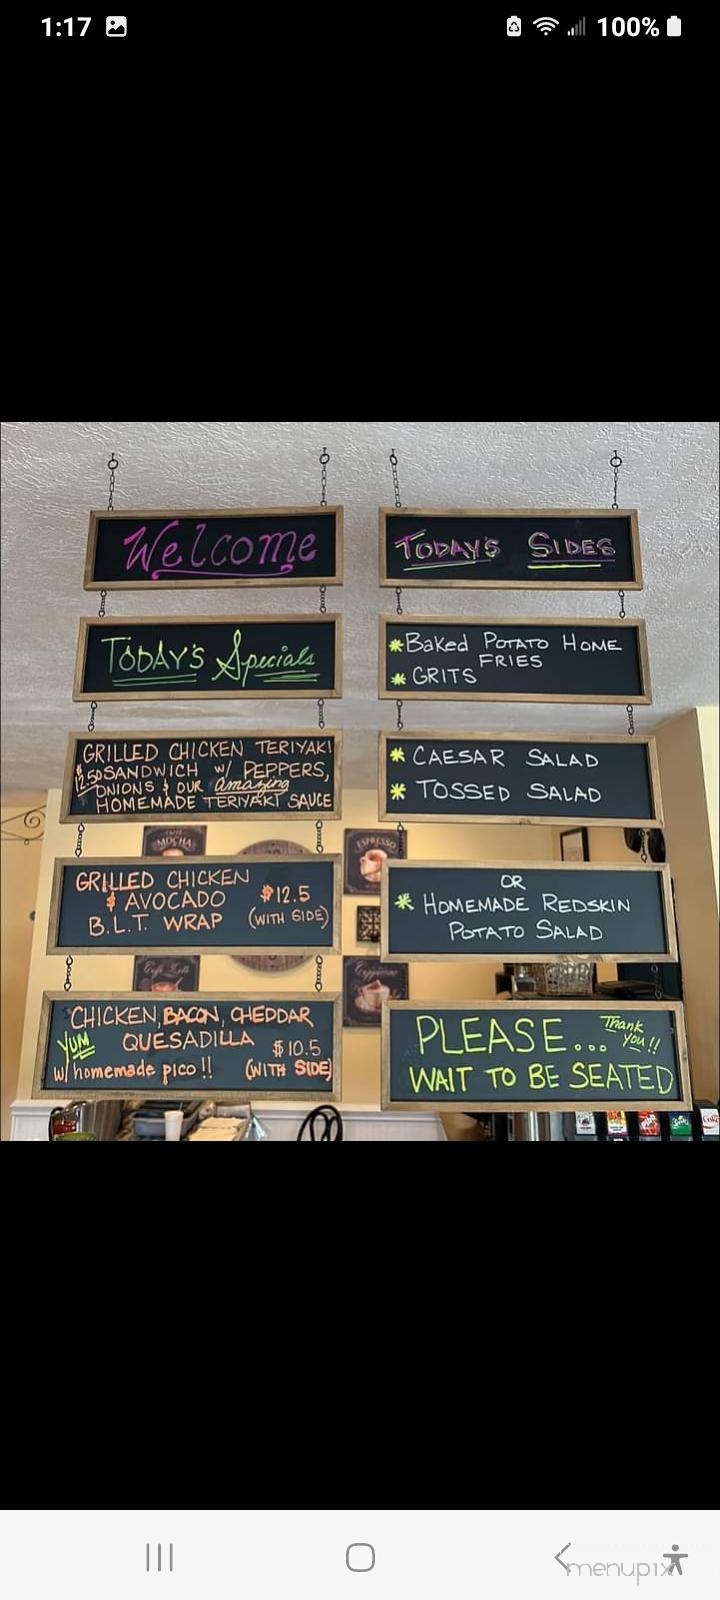 1:17
100%
Welcome
TODAY'S Specials
GRILLED CHICKEN TERIYAKI
$12.50 SANDWICH w/ PEPPERS,
ONIONS & OUR amazing
HOMEMADE TERIYAKI SAUCE
GRILLED CHICKEN
& AVOCADO
B.L.T. WRAP
$12.5
(WITH SIDE)
CHICKEN, BACON, CHEDDAR
QUESADILLA
YUM
$10.5
w/ homemade pico!!
(WITH SIDE)
TODAY'S SIDES
*Baked POTATO HOME
FRIES
* GRITS
* CAESAR SALAD
* TOSSED SALAD
OR
* HOMEMADE REDSKIN
POTATO SALAD
PLEASE...
Thank
you!!
WAIT TO BE SEATED
MOCHA
ESPRESSO
Cappuccino
Coke
menupix